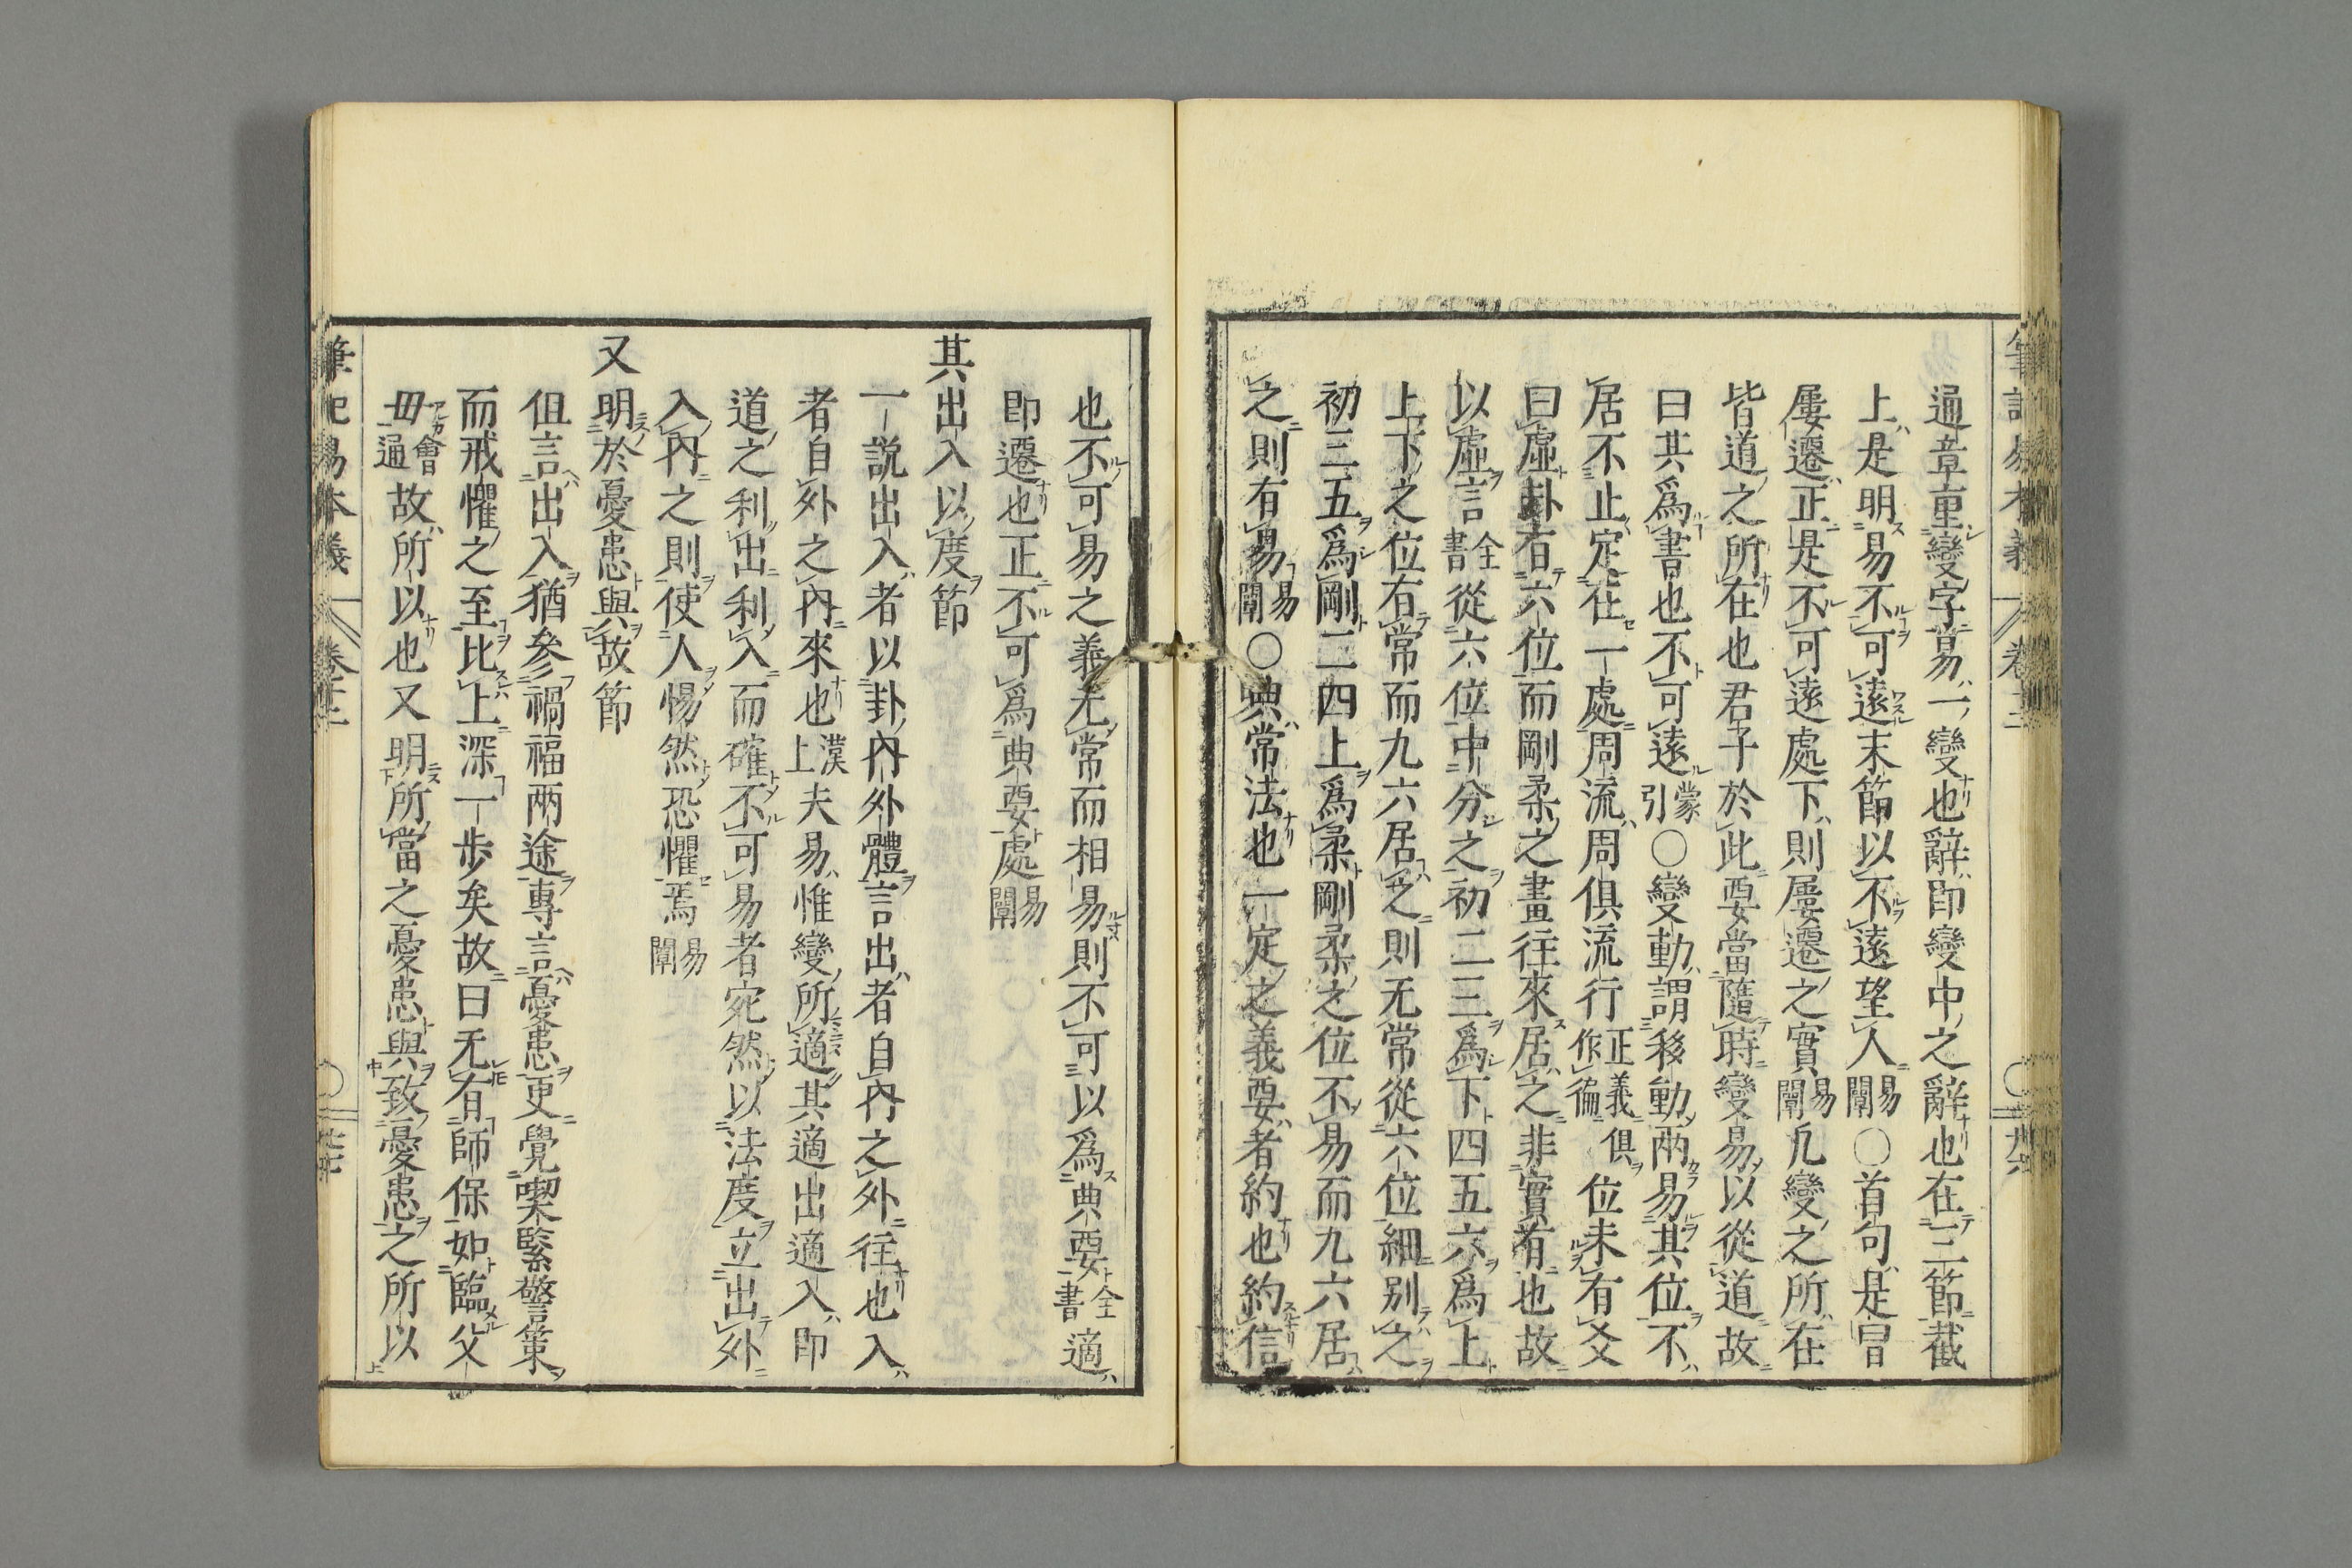 通章重變字易一變也辭即變中之辭也在三節截
上是明易不可遠末節以不遠望人易闡○首句是冒
屢遷正是不可遠處下則屢遷之實易闡凡變之所在
皆道之所在也君子於此要當隨時變易以從道故
曰其爲書也不可遠蒙引○變動謂移動兩易其位不
居不止定在一處周流周俱流行正義作徧俱位未有爻
曰虛卦有六位而剛柔之畫往來居之非實有也故
以虛言全書從六位中分之初二三爲下四五六爲上
上下之位有常而九六居之則无常從六位細別之
初三五爲剛二四上爲柔剛柔之位不易而九六居
之則有易易闡○典常法也一定之義要者約也約信
也不可易之義无常而相易則不可以爲典要全書適
即遷也正不可爲典要處易闡
其出入以度節
一說出入者以卦內外體言出者自內之外往也入
者自外之內來也漢上夫易惟變所適其適出適入即
道之利出利入而確不可易者宛然以法度立出外
入內之則使人惕然恐懼焉易闡
又明於憂患與故節
但言出入猶參禍福兩途專言憂患更覺喫緊警策
而戒懼之至比上深一步矣故曰无有師保如臨父
毋會通故所以也又明所當之憂患與致憂患之所以